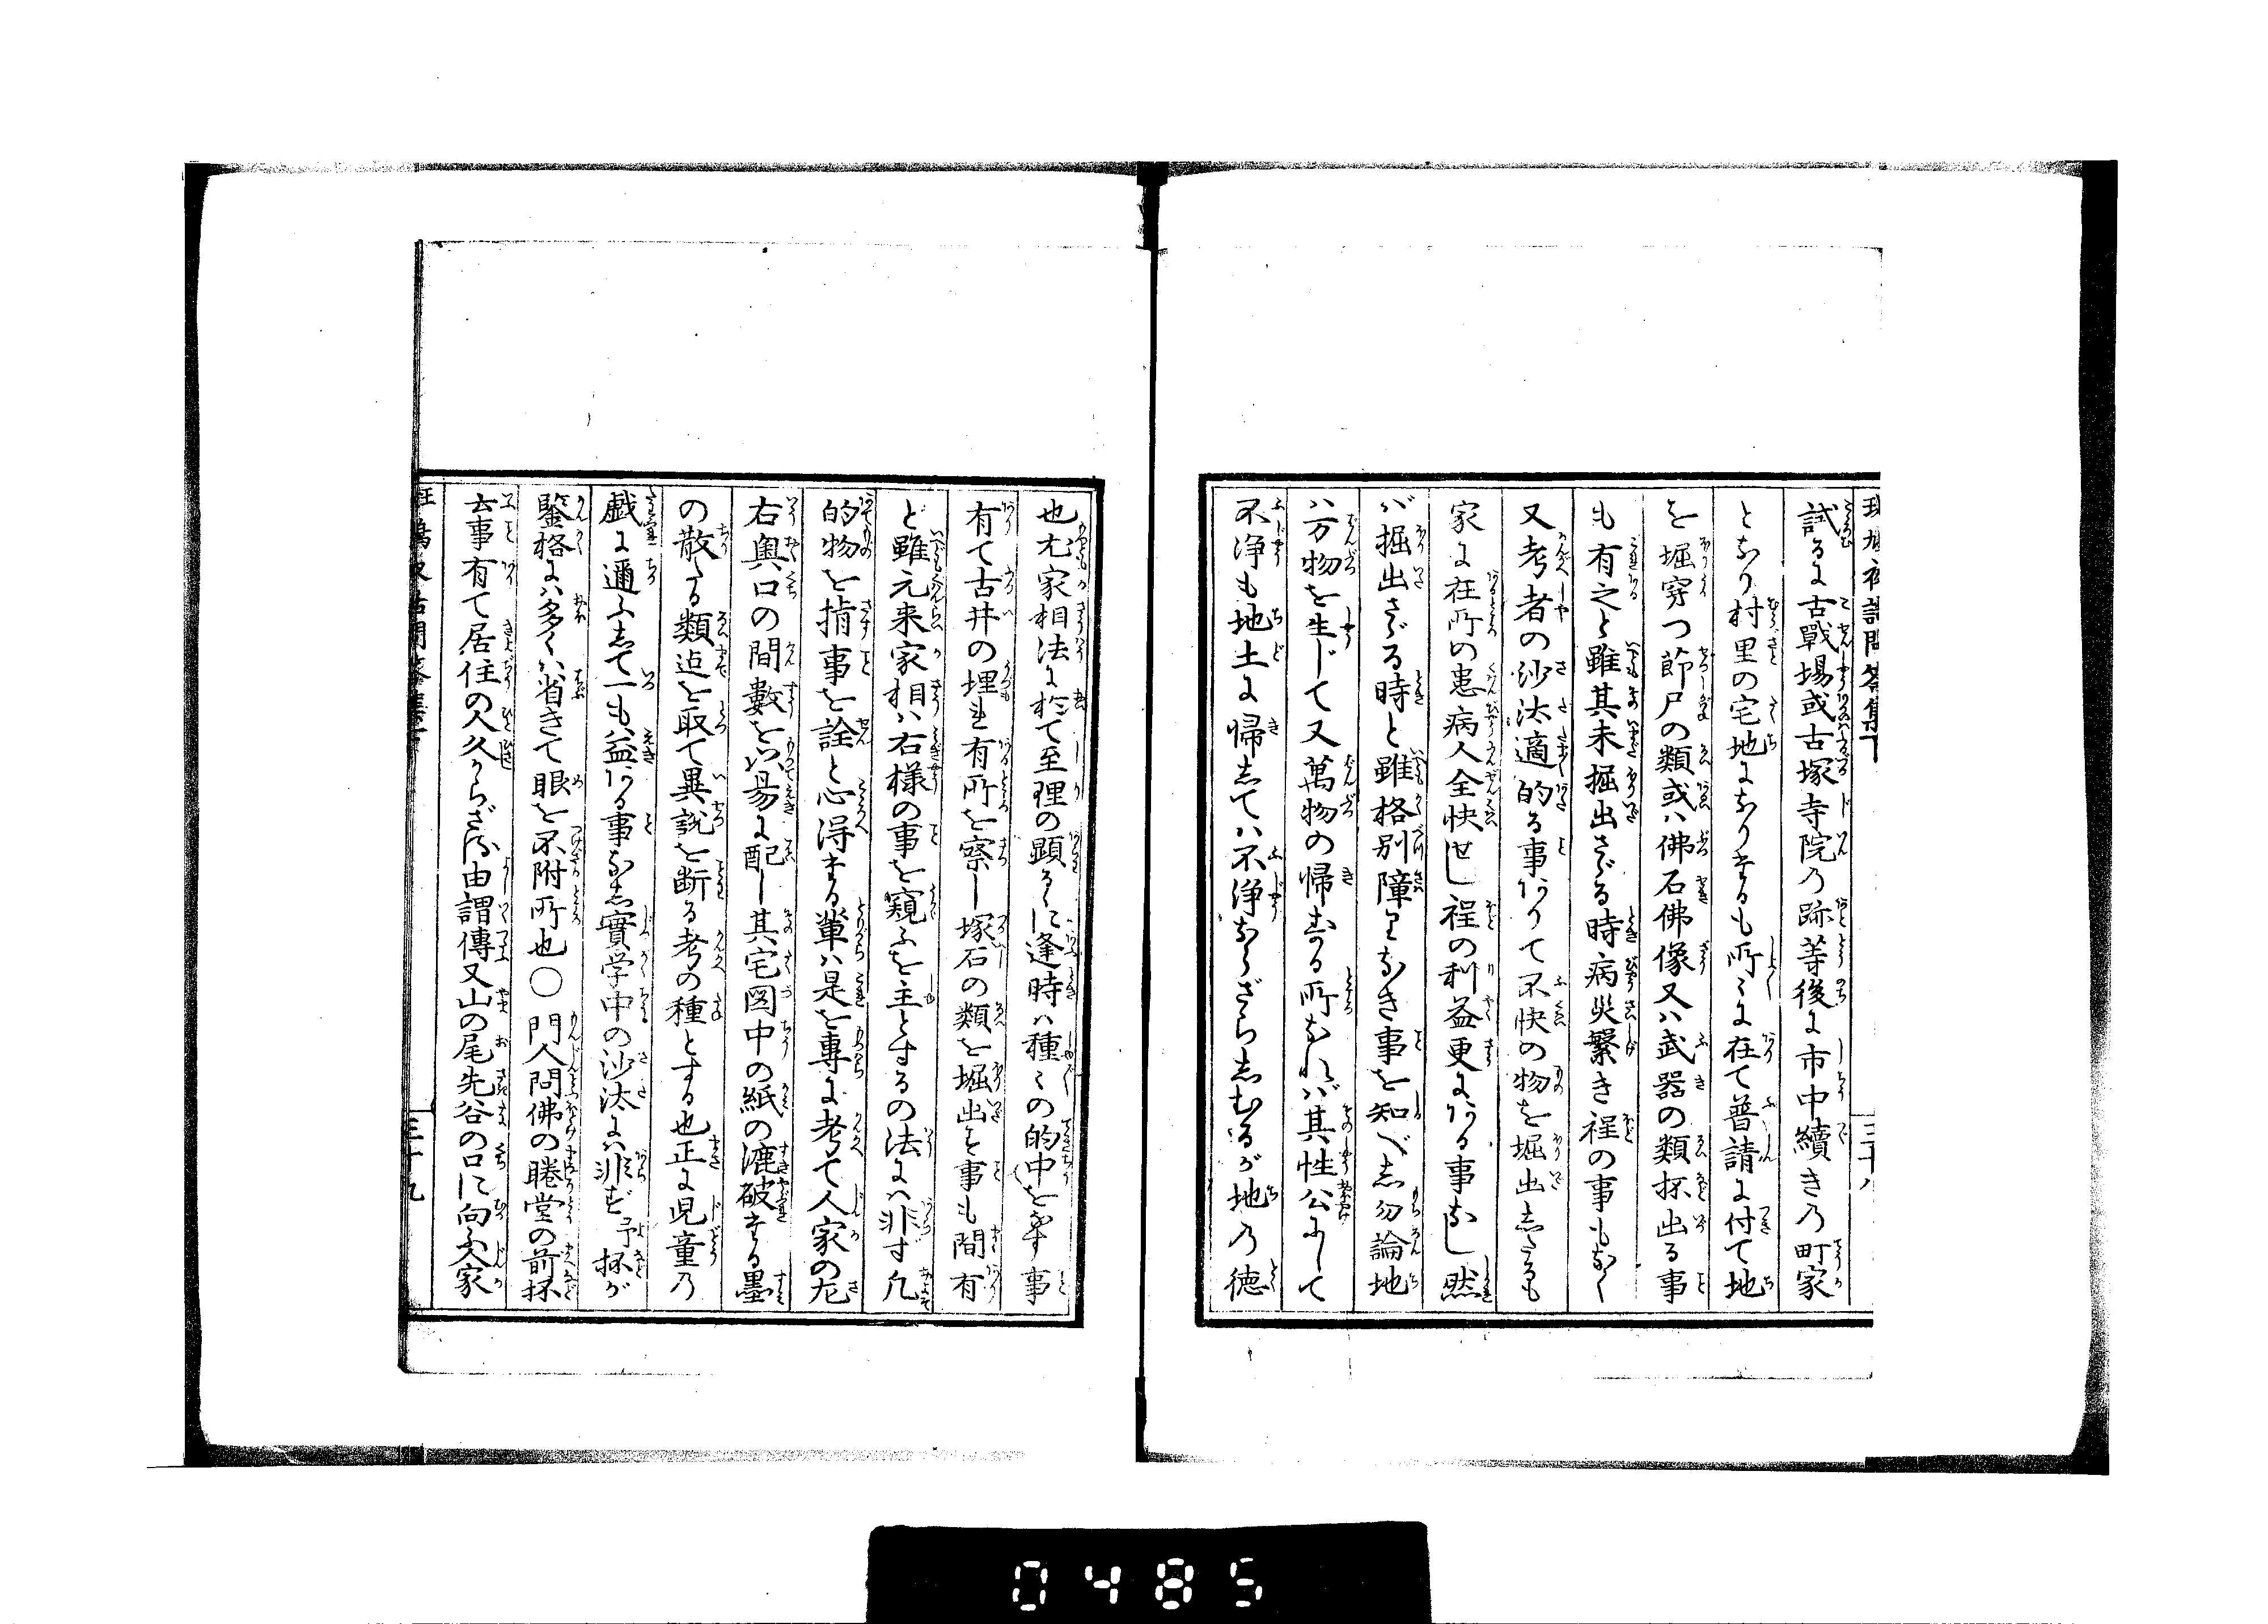 試るに古戰場或古塚寺院の跡等後に市中續きの町家
となり村里の宅地になりするも所々に在て普請に付て地
を堀穿つ節尸の類或ハ佛石佛像又ハ武器の類抔出る事
も有之と雖其未掘出さゞる時病災繁き程の事もなく
又考者の沙汰適的る事ありて不快の物を堀出したるも
家に在所の患病人全快せし程の利益更にある事なし然
バ掘出さゞる時と雖格別障りなき事を知べし勿論地
ハ万物を生じて又萬物の帰する所なれバ其性公にして
不浄も地土に帰してハ不浄ならざらしむるが地の徳
也尤家相法に於て至理の顕るに逢時ハ種々の的中をなす事
有て古井の埋れ有所を察し塚石の類を堀出す事も間有
ど雖元来家相ハ右様の事を窺ふを主とするの法にハ非ず凡
的物を指事を詮と心得する輩ハ是を専に考て人家の左
右奥口の間數を以易に配し其宅図中の紙の漉破する墨
の散たる類迠を取て異説を断る考の種とする也正に児童の
戯に邇ふして一も益ある事なし實学中の沙汰にハ非ず予抔が
鑒格にハ多くハ省きて眼を不附所也〇門人問佛の腃堂の前抔
去事有て居住の人久からざる由謂傳又山の尾先谷の口に向ふ人家
三十九
0485